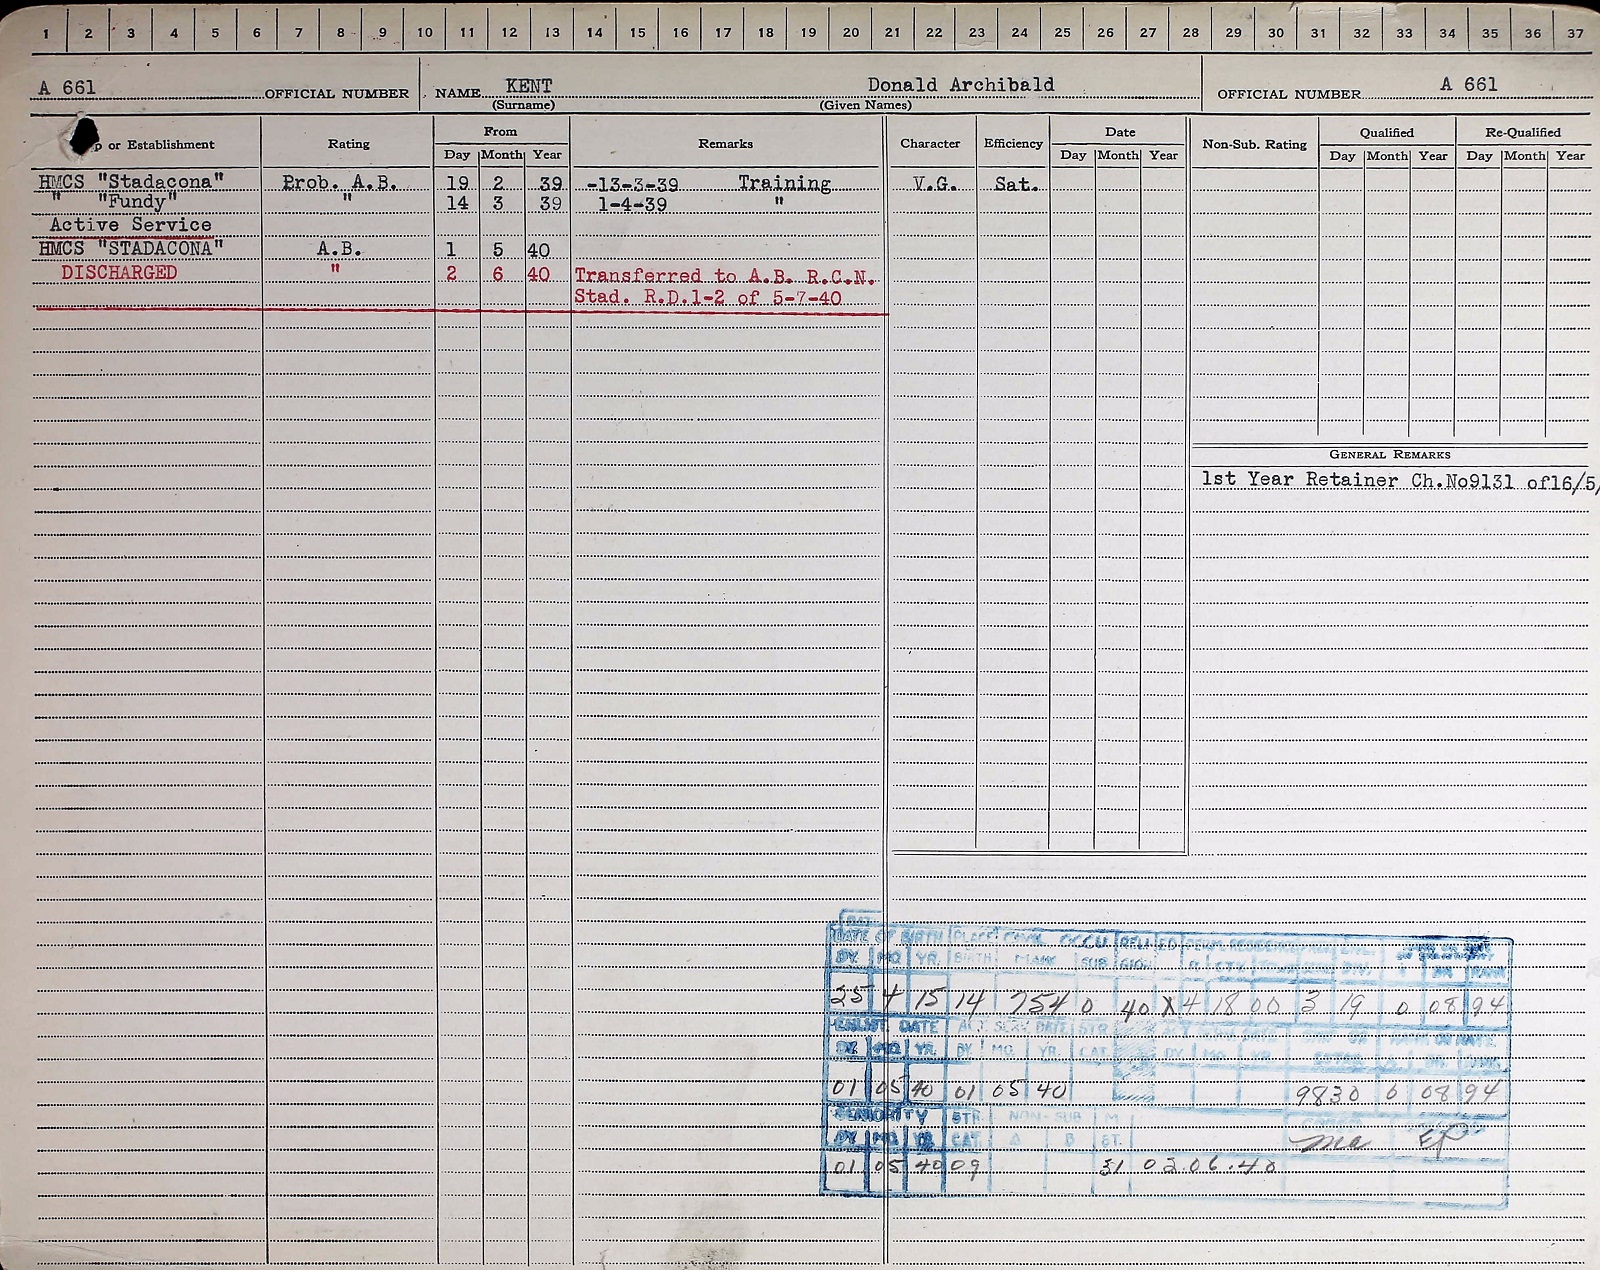 1 2 3 4 5 6 7 8 9 10 11 12 13 14 15 16 17 18 19 20 21 22 23 24 25 26 27 28 29 30 31 32 33 34 35 36 37
A 661 OFFICIAL NUMBER NAME KENT Donald Archibald OFFICIAL NUMBER A 661
(Surname) (Given Names)
or Establishment Rating From Remarks Character Efficiency Date Non-Sub. Rating Qualified Re-Qualified
Day Month Year Day Month Year Day Month Year Day Month Year
HMCS "Stadacona" Prob. A.B. 19 2 39 -13-3-39 Training V.G. Sat.
" "Fundy" " 14 3 39 1-4-39 "
Active Service
HMCS "STADACONA" A.B. 1 5 40
DISCHARGED " 2 6 40 Transferred to A.B. R.C.N.
Stad. R.D.1-2 of 5-7-40
GENERAL REMARKS
1st Year Retainer Ch.No9131 of16/5/
DATE OF BIRTH PLACE OCCU RELI ED
DY. MO. YR. BIRTH MARK SUB GION
25 4 15 14 754 0 40 X4 18 00 3 19 0 08 94
ENLIST. DATE ACT. SERV. DATE STR.
DY. MO. YR. DY. MO. YR. CAT. DY. MO. YR.
01 05 40 01 05 40 9830 0 08 94
SENIORITY STR. NON-SUB M
DY. MO. YR. CAT. A B ST.
01 05 40 09 31 02.06.40